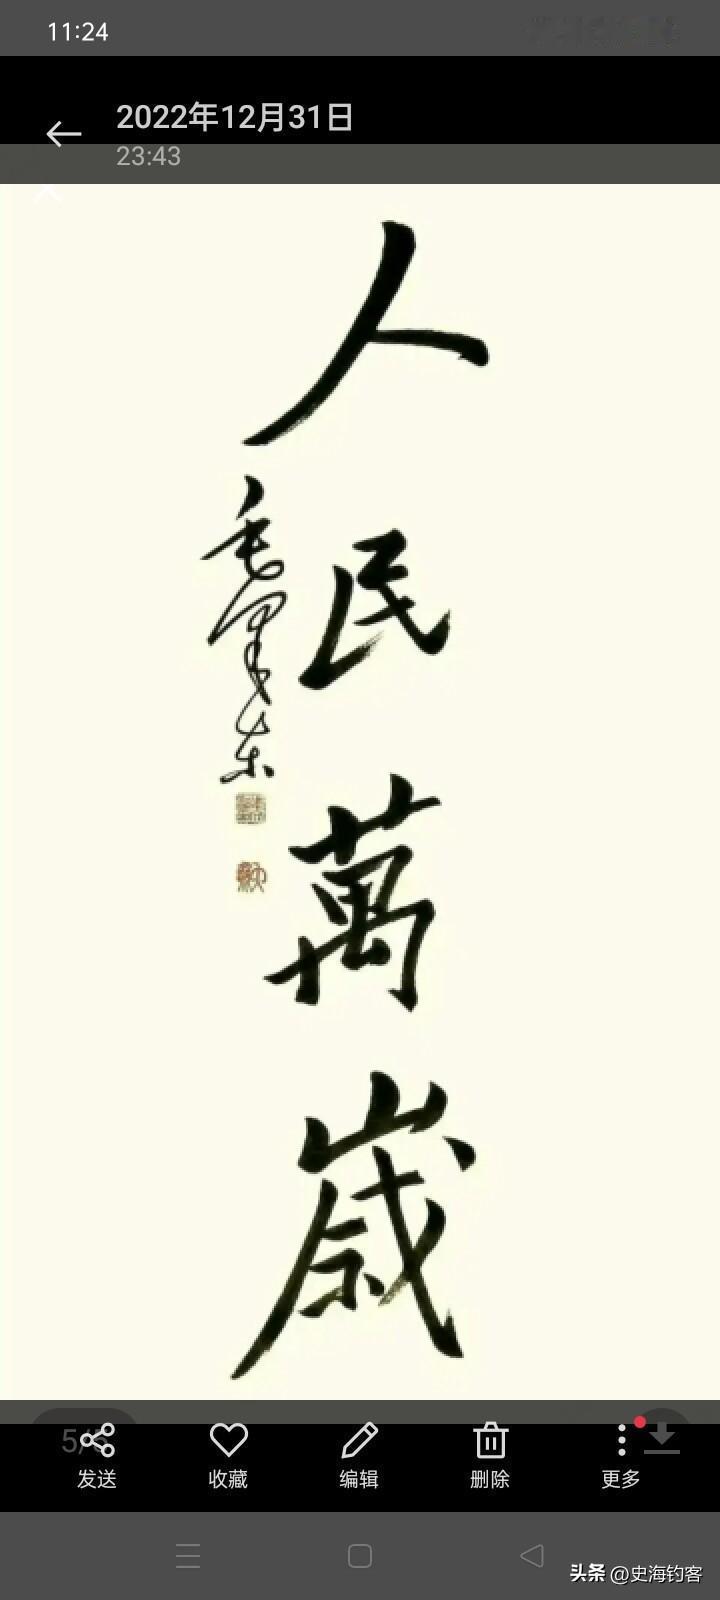 11:24
2022年12月31日
23:43
人民萬歲
毛澤东
发送
收藏
编辑
删除
更多
头条 @史海钓客